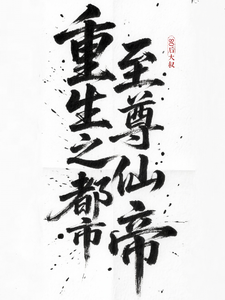 重生之都市
至尊仙帝
80后大叔